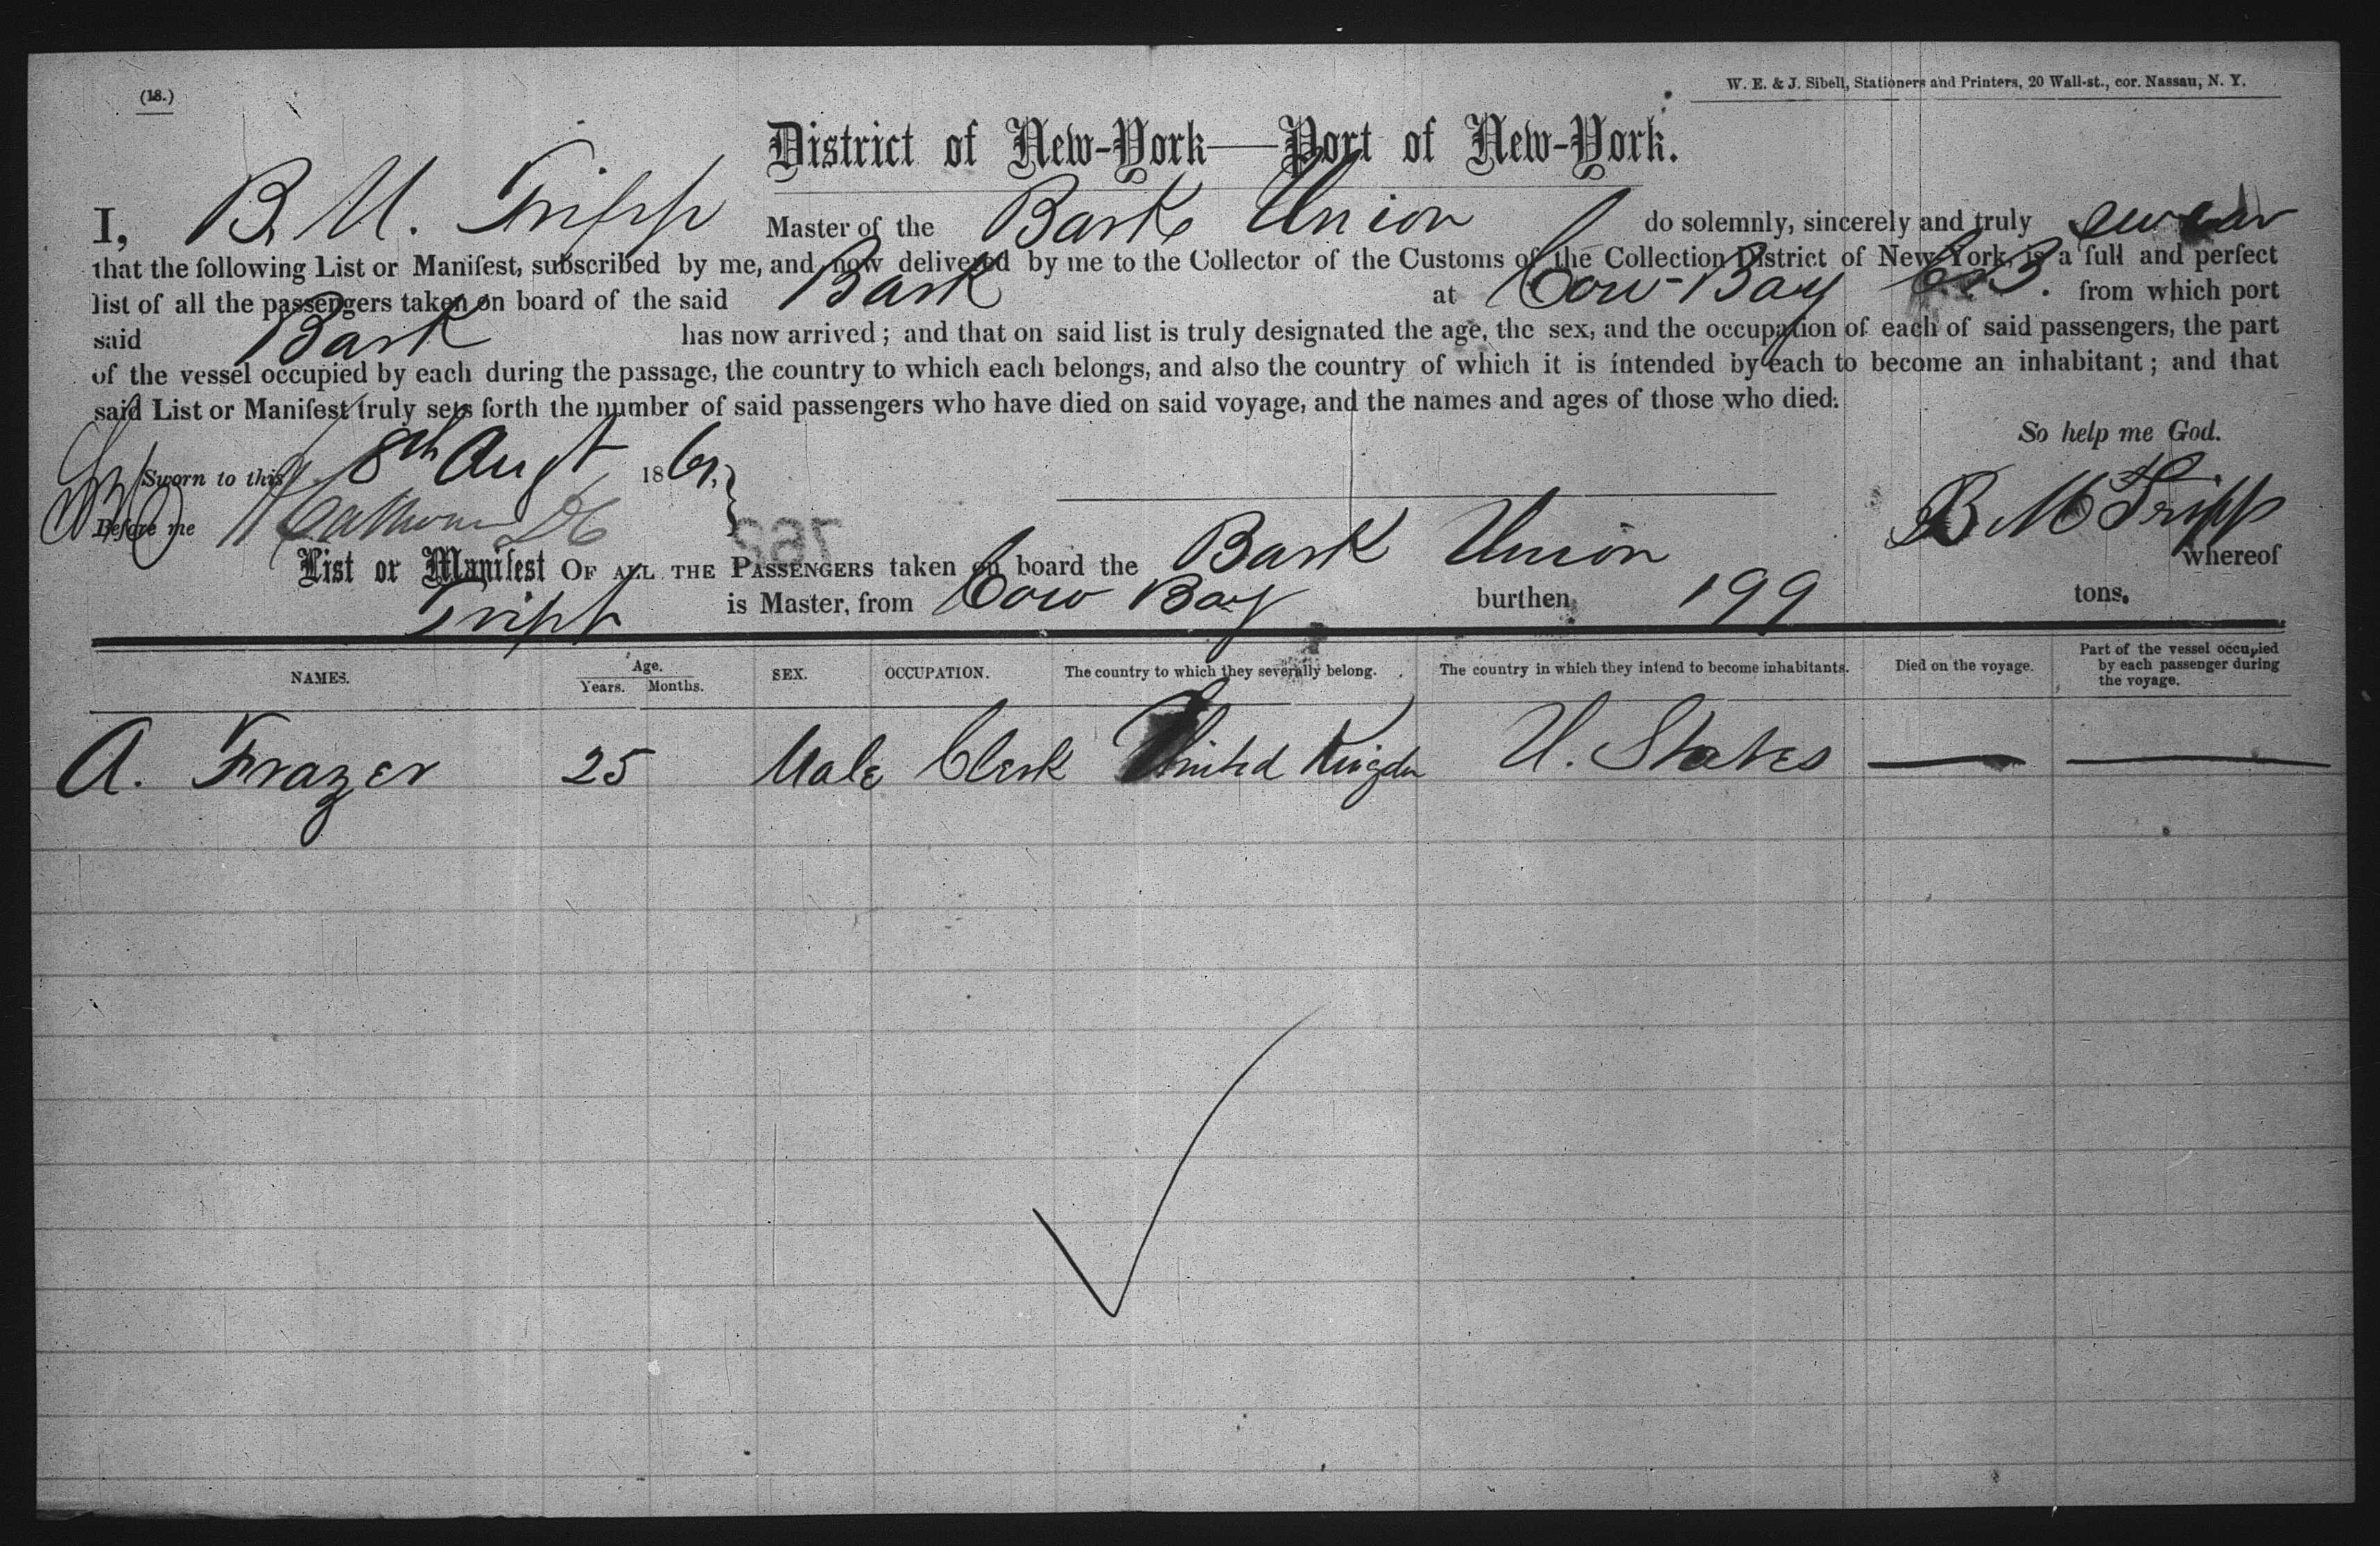 (18.)
W. E. & J. Sibell, Stationers and Printers, 20 Wall-st., cor. Nassau, N. Y.
District of New-York—Port of New-York.
I, B. M. Tripp Master of the Bark Union do solemnly, sincerely and truly swear
that the following List or Manifest, subscribed by me, and now delivered by me to the Collector of the Customs of the Collection District of New York, is a full and perfect
list of all the passengers taken on board of the said Bark at Cow-Bay C.B. from which port
said Bark has now arrived; and that on said list is truly designated the age, the sex, and the occupation of each of said passengers, the part
of the vessel occupied by each during the passage, the country to which each belongs, and also the country of which it is intended by each to become an inhabitant; and that
said List or Manifest truly sets forth the number of said passengers who have died on said voyage, and the names and ages of those who died.
So help me God.
Sworn to this 8th Augt 1861,
B M Tripp
Before me Calhoun DC
List or Manifest OF ALL THE PASSENGERS taken on board the Bark Union whereof
Tripp is Master, from Cow Bay burthen 199 tons.
NAMES. Age. Years. Months. SEX. OCCUPATION. The country to which they severally belong. The country in which they intend to become inhabitants. Died on the voyage. Part of the vessel occupied by each passenger during the voyage.
A. Frazer 25 Male Clerk United Kingdm U. States — —